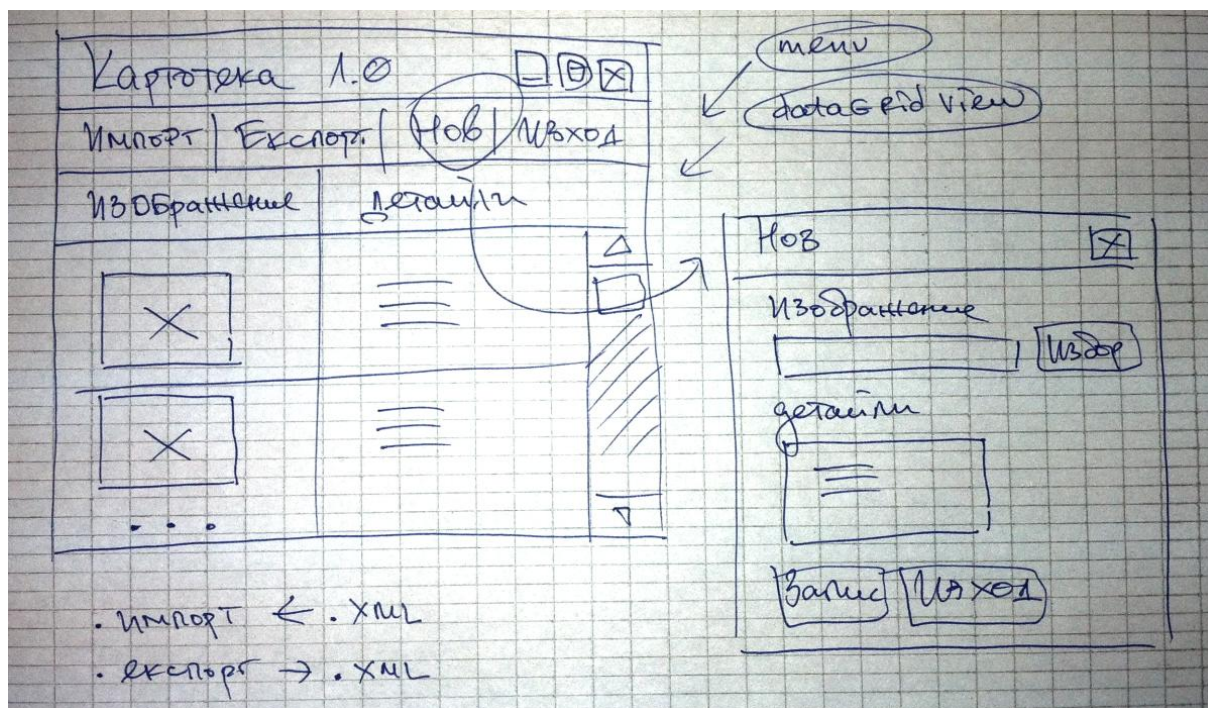 Картотека 1.0
Импорт | Експорт | Нов | Изход
Изображение
детайли
menu
dataGridView
Нов
Изображение
Избор
детайли
Запис
Изход
. импорт ← . XML
. експорт → . XML